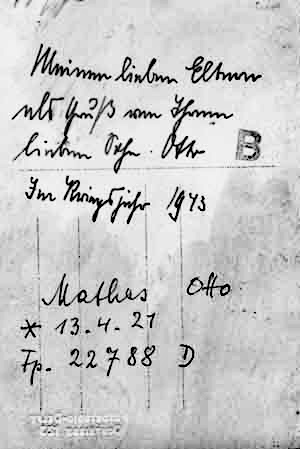 Meinen lieben Eltern
als Gruß von Ihrem
lieben Sohn. Otto
B
Im Kriegsjahr 1943
Mathes Otto
* 13.4.21
Fp. 22788 D